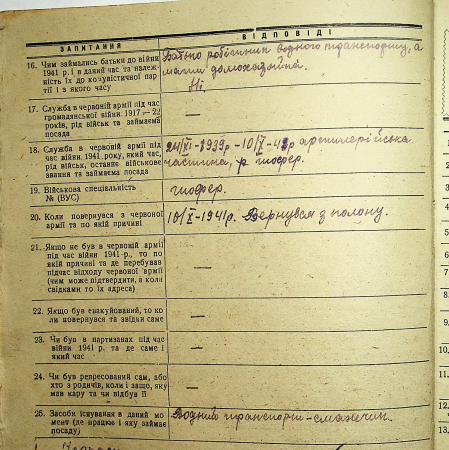 ЗАПИТАННЯ
ВІДПОВІДІ
16. Чим займались батьки до війни
1941 р. і в даний час та належ-
ність їх до комуністичної пар-
тії і з якого часу
Батько робітник водного транспорту, а
мати домохазяйка.
Ні
17. Служба в червоній армії під час
громадянської війни 1917—22
років, рід військ та займаєма
посада
—
18. Служба в червоній армії під
час війни 1941 року, який час,
рід військ, останнє військове
звання та займаєма посада
24/XI-1939р-10/X-41р артилерійська
частина, р шофер.
19. Військова спеціальність
№ (ВУС)
шофер.
20. Коли повернувся з червоної
армії та по якій причині
10/X-1941р. Вернувся з полону.
21. Якщо не був в червоній армії
під час війни 1941-р., то по
якій причині та де перебував
підчас відходу червоної армії
(чим може підтвердити, а коли
свідками то їх адреса)
—
22. Якщо був евакуйований, то ко-
ли повернувся та звідки саме
—
23. Чи був в партизанах під час
війни 1941 р. та де саме і
який час
—
24. Чи був репресований сам, або
хто з родичів, коли і защо, яку
мав кару та чи відбув її
—
25. Засоби існування в даний мо-
мент (де працює і яку займає
посаду)
Водний транспорт-
1.
8.
9.
10.
11.
12.
13.